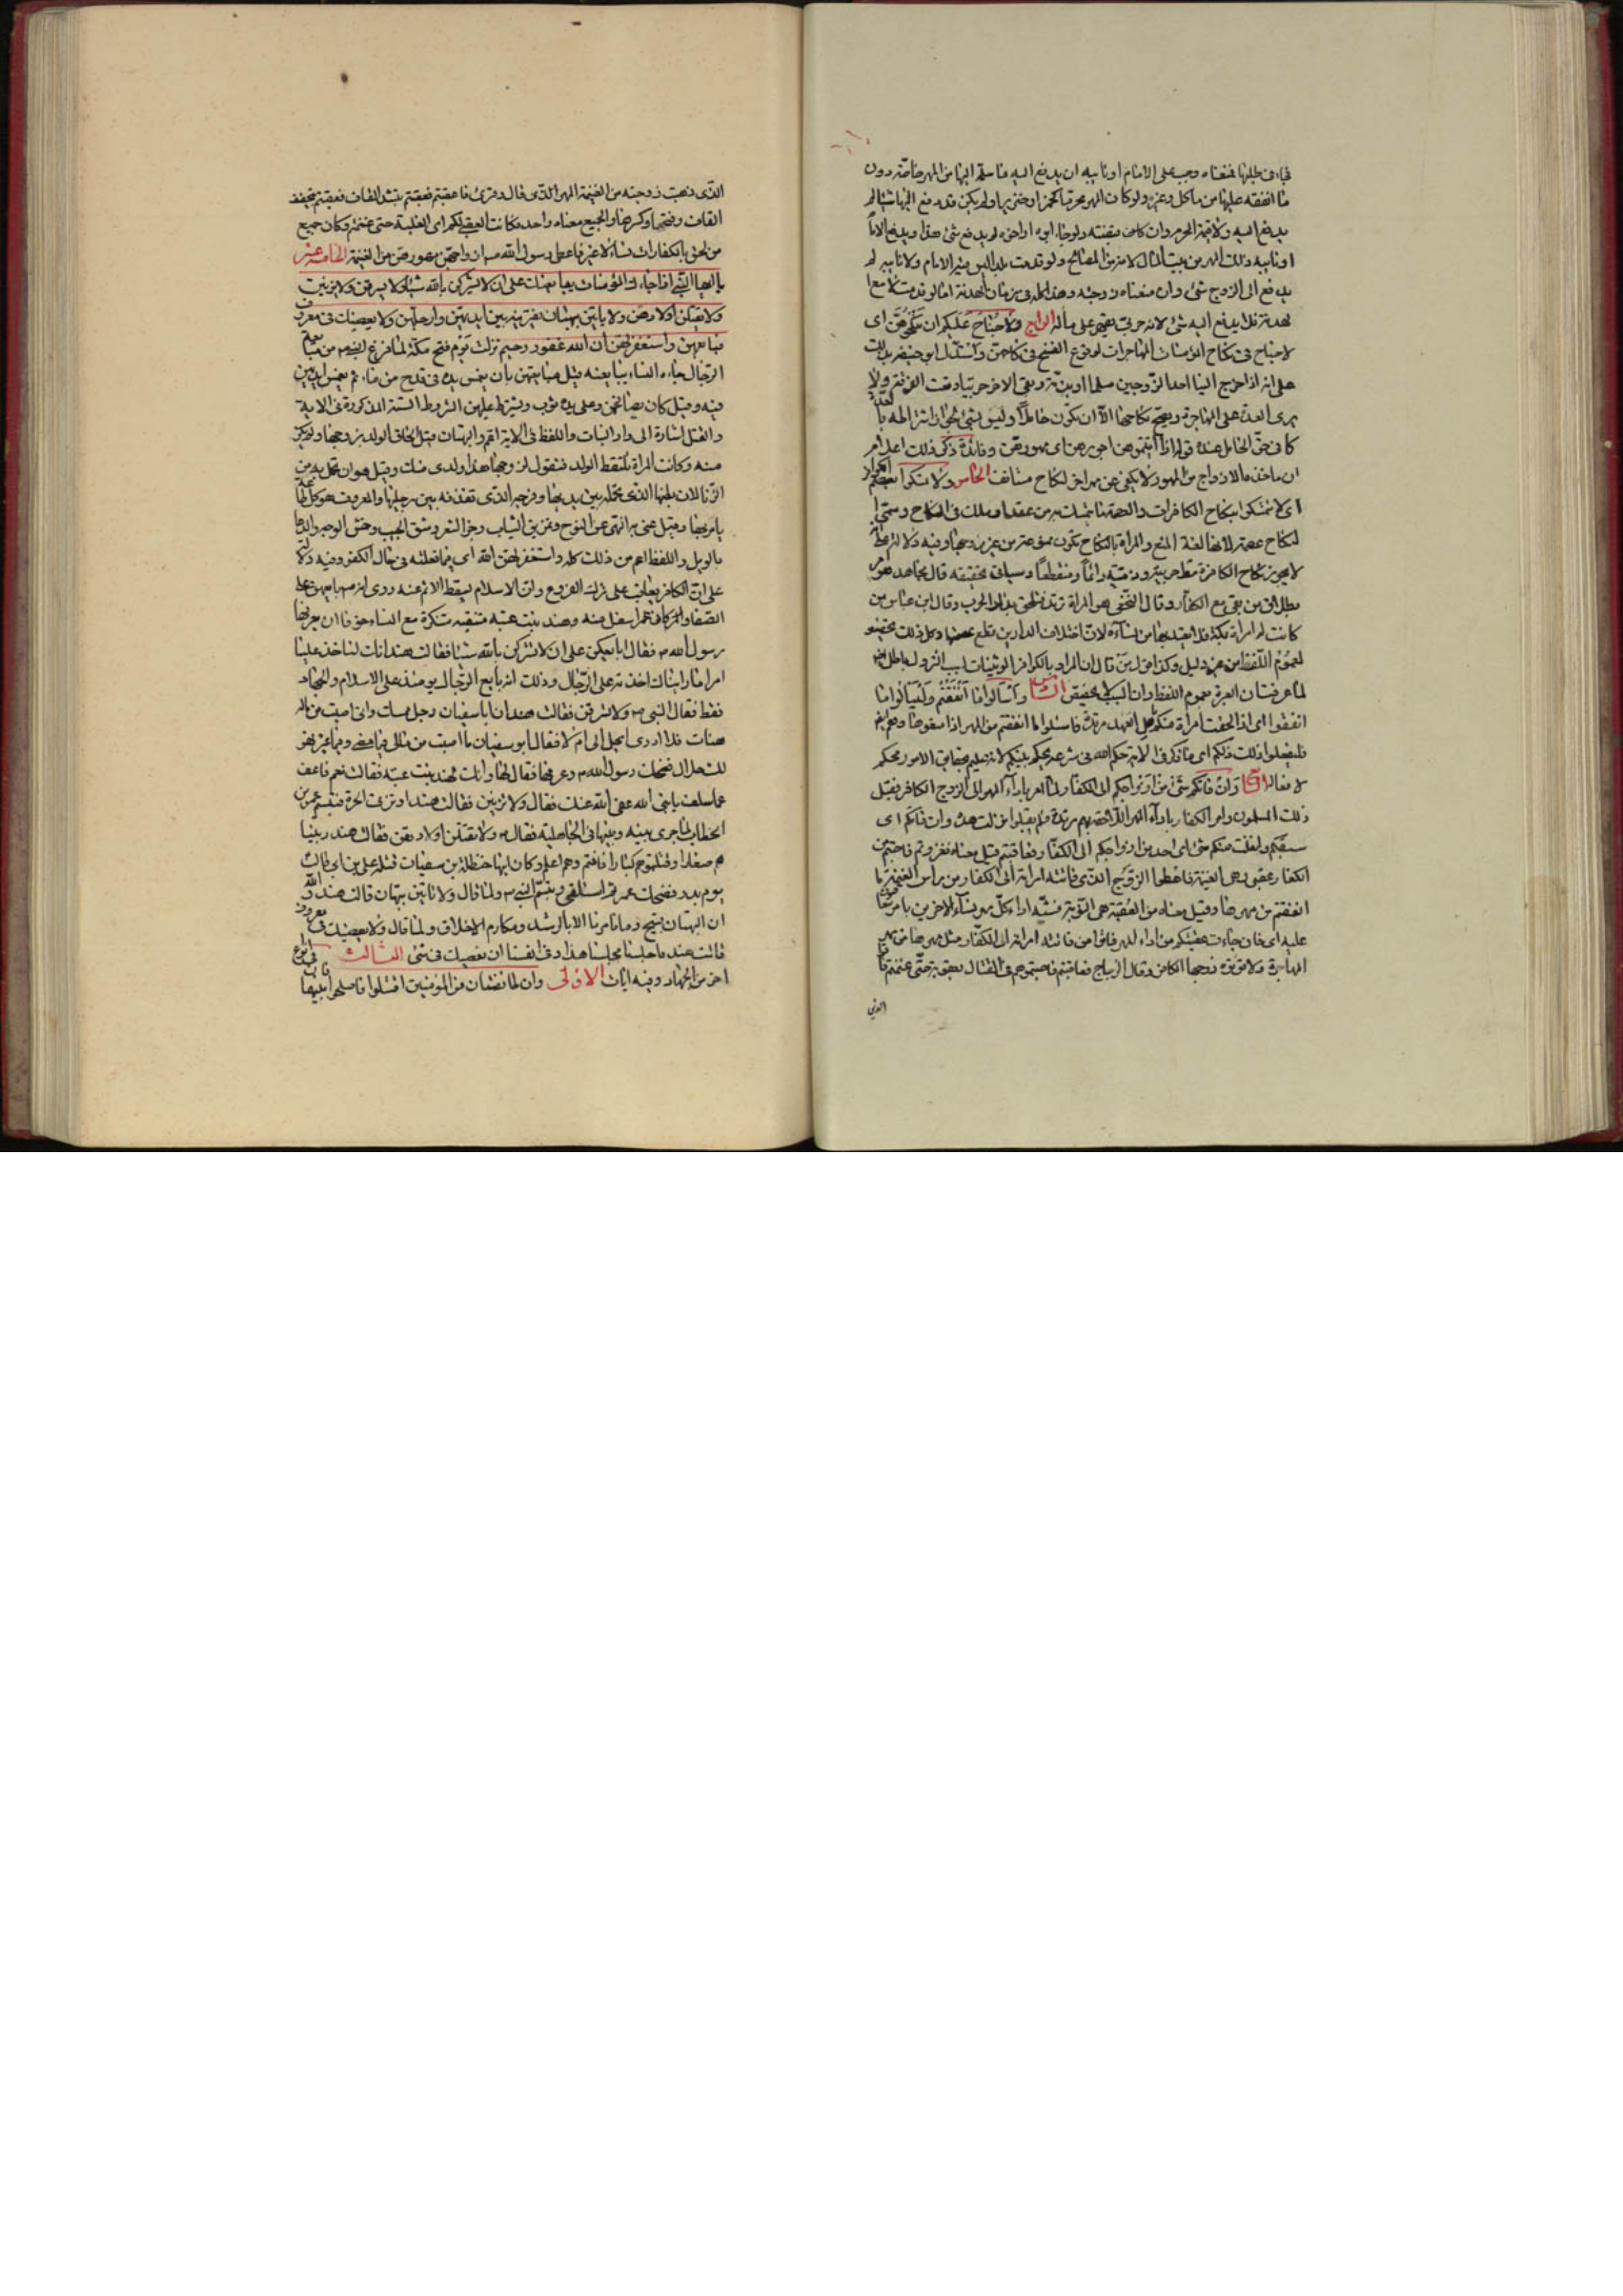 فجاء في طلبها فمنعناه وجب على الامام او نائبه ان يدفع اليه ما سلمه اليها من المهر خاصّة دون
ما انفقه عليها من مأكل وغيره ولو كان المهر محرّما كخمر او خنزير او لم يكن قد دفع اليها شيئا لم
يدفع اليه ولا قيمة المحرم وان كانت بقبضته ولو جاء ابوه او اخوه لم يدفع شئ هذا ويدفع الامام
او نائبه ذلك المهر من بيت المال لانه من المصالح ولو قدمت بلدا ليس فيه الامام ولا نائبه لم
يدفع الى الزوج شئ وان منعناه زوجته وهذا كله في زمان الهدنة امّا لو قدمت لا مع
الهدنة فلا يدفع اليه شئ لانه حربي يقهر على ماله الرابع ولا جناح عليكم ان تنكحوهنّ اى
لا جناح في نكاح المؤمنات المهاجرات لوقوع الفسخ في نكاحهنّ واستدلّ ابو حنيفة بذلك
على انه اذا خرج الينا احد الزّوجين مسلما او بذمّة وبقى الاخر حربيا وقعت الفرقة ولا
يرى العدّة على المهاجرة ويصحّ نكاحها الّا ان تكون حاملًا وليس بشئ لجواز اشتراطه بالعدّة
كما في حقّ الحامل عنده قوله اذا اتيتموهنّ اجورهنّ اى مهورهنّ وفائدة ذكر ذلك اعلامهم
ان ما اخذه الازواج من المهور لا يكفى عن مهر اخر لنكاح مستأنف الخامس ولا تمسكوا بعصم الكوافر
اى لا تتمسّكوا بنكاح الكافرات والعصمة ما يتمسّك به من عقد او ملك في النكاح وسمّى
النكاح عصمة لانها لغة المنع والمرأة بالنكاح تكون ممنوعة من غير زوجها وفيه دلالة على انّه
لا يجوز نكاح الكافرة مطلقا حربيّة وذمّيّة دائمًا ومنقطعًا وسيأتى تحقيقه قال مجاهد هو امر
بطلاق من بقى مع الكفار وقال النخعى هى المرأة ترتد فتلحق بدار الحرب وقال ابن عباس من
كانت له امرأة بمكة فلا يعتدّ بها من نسائه لانّ اختلاف الدارين قطع عصمتها وكل ذلك تخصيص
لعموم اللّفظ من غير دليل وكذا قول من قال ان المراد بالكوافر الوثنيات لسبب النزول باطل ايضا
لما عرفت ان العبرة بعموم اللفظ وان السبب لا يخصّص السادس واسألوا ما انفقتم وليسألوا ما
انفقوا اى اذا لحقت امرأة منكم باهل العهد مرتدّة فاسئلوا ما انفقتم من المهر اذا منعوها وهم ايضا
فليفعلوا ذلك ذلكم اى ما ذكر في الاية حكم الله في شرعه يحكم بينكم لانه عليم بحقايق الامور محكم
لافعاله السابع وان فاتكم شئ من ازواجكم الى الكفار لما امر باداء المهر الى الزوج الكافر فقبل
ذلك المسلمون وامر الكفار باداء المهر اللاحقة بهم مرتدة فلم يقبلوا نزلت هذه وان فاتكم اى
سبقكم وانفلت منكم شئ اى احد من ازواجكم الى الكفار فعاقبتم قيل معناه فغزوتم فاصبتم من
الكفار عقبى وهى الغنيمة فاعطوا الزوج الذى فاتته امرأته الى الكفار من رأس الغنيمة ما
انفقتم من مهرها وقيل معناه من العُقبة هى النوبة فشبّه اداء كلّ مهر نساء الاخرين بامر يتعاقبون
عليه اى فان جاءت عقبتكم من اداء المهر فاتوا من فاتته امرأته الى الكفار مثل مهرها من مهر
المهاجرة ولا تؤتوه زوجها الكافر وقال الزجاج فعاقبتم فاصبتموهم في القتال بعقوبة حتّى غنمتم فآتوا
الذي
الذى ذهبت زوجته من الغنيمة المهر الذى قال وقرئ فاعقبتم فعقّبتم بتشديد القاف فعقبتم بتخفيف
القاف وفتحها وكسرها والجميع معناه واحد فكانت العقبى لكم اى الغلبة حتى غنمتم وكان جميع
من لحق بالكفار ست نساء لا غير فاعطى رسول الله ص ازواجهنّ مهورهنّ من الغنيمة الخامسة عشر
يا ايها النّبى اذا جاءك المؤمنات يبايعنك على ان لا يشركن بالله شيئا ولا يسرقن ولا يزنين
ولا يقتلن اولادهنّ ولا يأتين ببهتان يفترينه بين ايديهنّ وارجلهنّ ولا يعصينك في معروف
فبايعهنّ واستغفر لهنّ الله ان الله غفور رحيم نزلت يوم فتح مكة لما فرغ النبى ص من مبايعة
الرّجال جاءه النساء يبايعنه قيل مبايعتهن بان يغمس يده في قدح من ماء ثم يغمس ايديهنّ
فيه وقيل كان يصافحهنّ وعلى يده ثوب ويشترط عليهن الشروط الستة المذكورة في الاية
والقتل اشارة الى وأد البنات واللفظ في الاية اعم والبهتان قيل الحاق الولد بزوجها ولم يكن
منه وكانت المرأة تلتقط الولد فتقول لزوجها هذا ولدى منك وقيل هو ان تحمل به من
الزّنا لان بطنها الذى تحمله بين يديها وفرجها الذى تقذفه بين رجليها والمعروف هو كل طاعة
يأمر بها وقيل عنى به النهى عن النوح وتمزيق الثياب وجزّ الشعر وشقّ الجيب وخمش الوجه والدعاء
بالويل واللفظ اعم من ذلك كله واستغفر لهنّ الله اى فيما فعلنه في حال الكفر وفيه دلالة
على انّ الكافر يعاقب على ترك الفروع وان الاسلام يسقط الاثم عنه روى انه ص بايعهنّ على
الصفا وكان عمر اسفل منه وهند بنت عتبة متنقبة متنكّرة مع النساء خوفا ان يعرفها
رسول الله ص فقال ابايعكنّ على ان لا تشركن بالله شيئا فقالت هند انك لتأخذ علينا
امرا ما رايناك اخذته على الرّجال وذلك انه بايع الرّجال يومئذ على الاسلام والجهاد
فقط فقال النبى ص ولا تسرقن فقالت هند ان ابا سفيان رجل ممسك وانى اصبت من ماله
هنات فلا ادرى ايحل لى ام لا فقال ابو سفيان ما اصبت من مالى فيما مضى وفيما غبر فهو
لك حلال فضحك رسول الله ص وعرفها فقال لها وانك لهند بنت عتبة فقالت نعم فاعف
عما سلف يا نبى الله عفى الله عنك فقال ولا تزنين فقالت هند او تزنى الحرة فتبسّم عمر بن
الخطاب لما جرى بينه وبينها في الجاهلية فقال ص ولا تقتلن اولادهنّ فقالت هند ربّينا
هم صغارا وقتلتموهم كبارا فانتم وهم اعلم وكان ابنها حنظلة بن سفيان قتله على بن ابى طالب
يوم بدر فضحك عمر حتى استلقى وتبسّم النبى ص ولما قال ولا تأتين ببهتان قالت هند والله
ان البهتان قبيح وما تأمرنا الا بالرشد ومكارم الاخلاق ولما قال ولا يعصينك في معروف
قالت هند ما جلسنا مجلسنا هذا وفي انفسنا ان نعصيك في شئ الثالث في انواع
اخر من الجهاد وفيه ايات الاولى وان طائفتان من المؤمنين اقتتلوا فاصلحوا بينهما فان